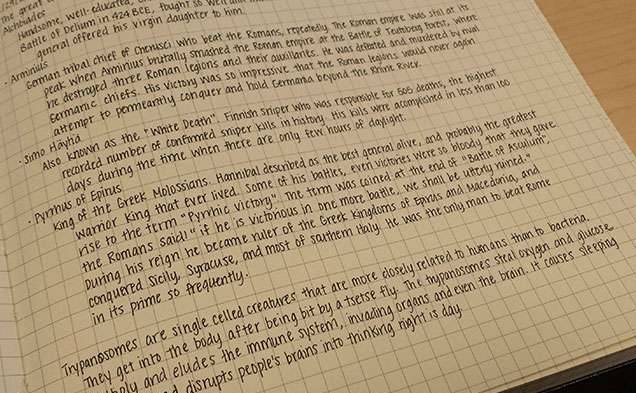 The great
Alcibiades
Handsome, well-educated,
Battle of Delium in 424 BCE, fought so well
general offered his virgin daughter to him.
· Arminius
German tribal chief of Cherusci who beat the Romans, repeatedly. The Roman empire was still at its
peak when Arminius brutally smashed the Roman empire at the Battle of Teutoberg Forest, where
he destroyed three Roman legions and their auxiliaries. He was defeated and murdered by rival
Germanic chiefs. His victory was so impressive that the Roman legions would never again
attempt to permeantly conquer and hold Germania beyond the Rhine River.
· Simo Häyhä
Also known as the "White Death". Finnish sniper who was responsible for 505 deaths, the highest
recorded number of confirmed sniper kills in history. His kills were accomplished in less than 100
days during the time when there are only few hours of daylight.
· Pyrrhus of Epirus
King of the Greek Molossians. Hannibal described as the best general alive, and probably the greatest
warrior king that ever lived. Some of his battles, even victories were so bloody that they gave
rise to the term "Pyrrhic victory". The term was coined at the end of "Battle of Asculum",
the Romans said: "if he is victorious in one more battle, we shall be utterly ruined."
During his reign he became ruler of the Greek Kingdoms of Epirus and Macedonia, and
conquered Sicily, Syracuse, and most of southern Italy. He was the only man to beat Rome
in its prime so frequently.
Trypanosomes are single celled creatures that are more closely related to humans than to bacteria.
They get into the body after being bit by a tsetse fly. The trypanosomes steal oxygen and glucose
and eludes the immune system, invading organs and even the brain. It causes sleeping
disrupts people's brains into thinking night is day